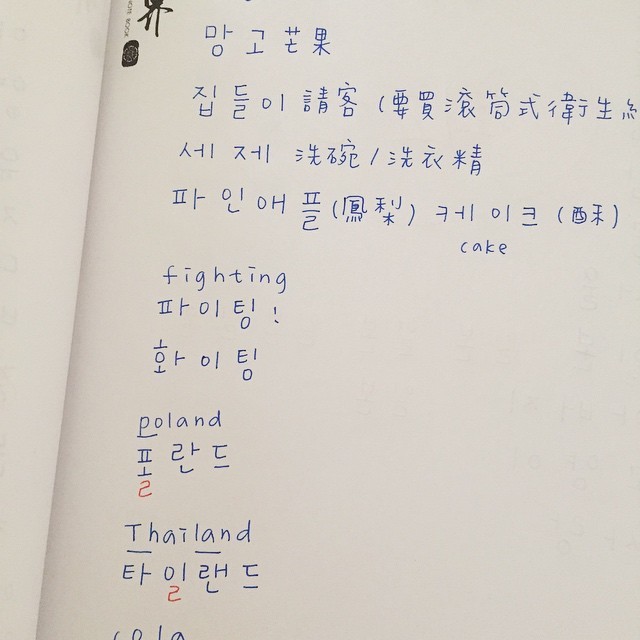 界
NOTE BOOK
망고芒果
집들이 請客 (要買滾筒式衛生
세제 洗碗/洗衣精
파인애플(鳳梨) 케이크(酥)
cake
fighting
파이팅!
화이팅
poland
폴란드
Thailand
타일랜드
cola